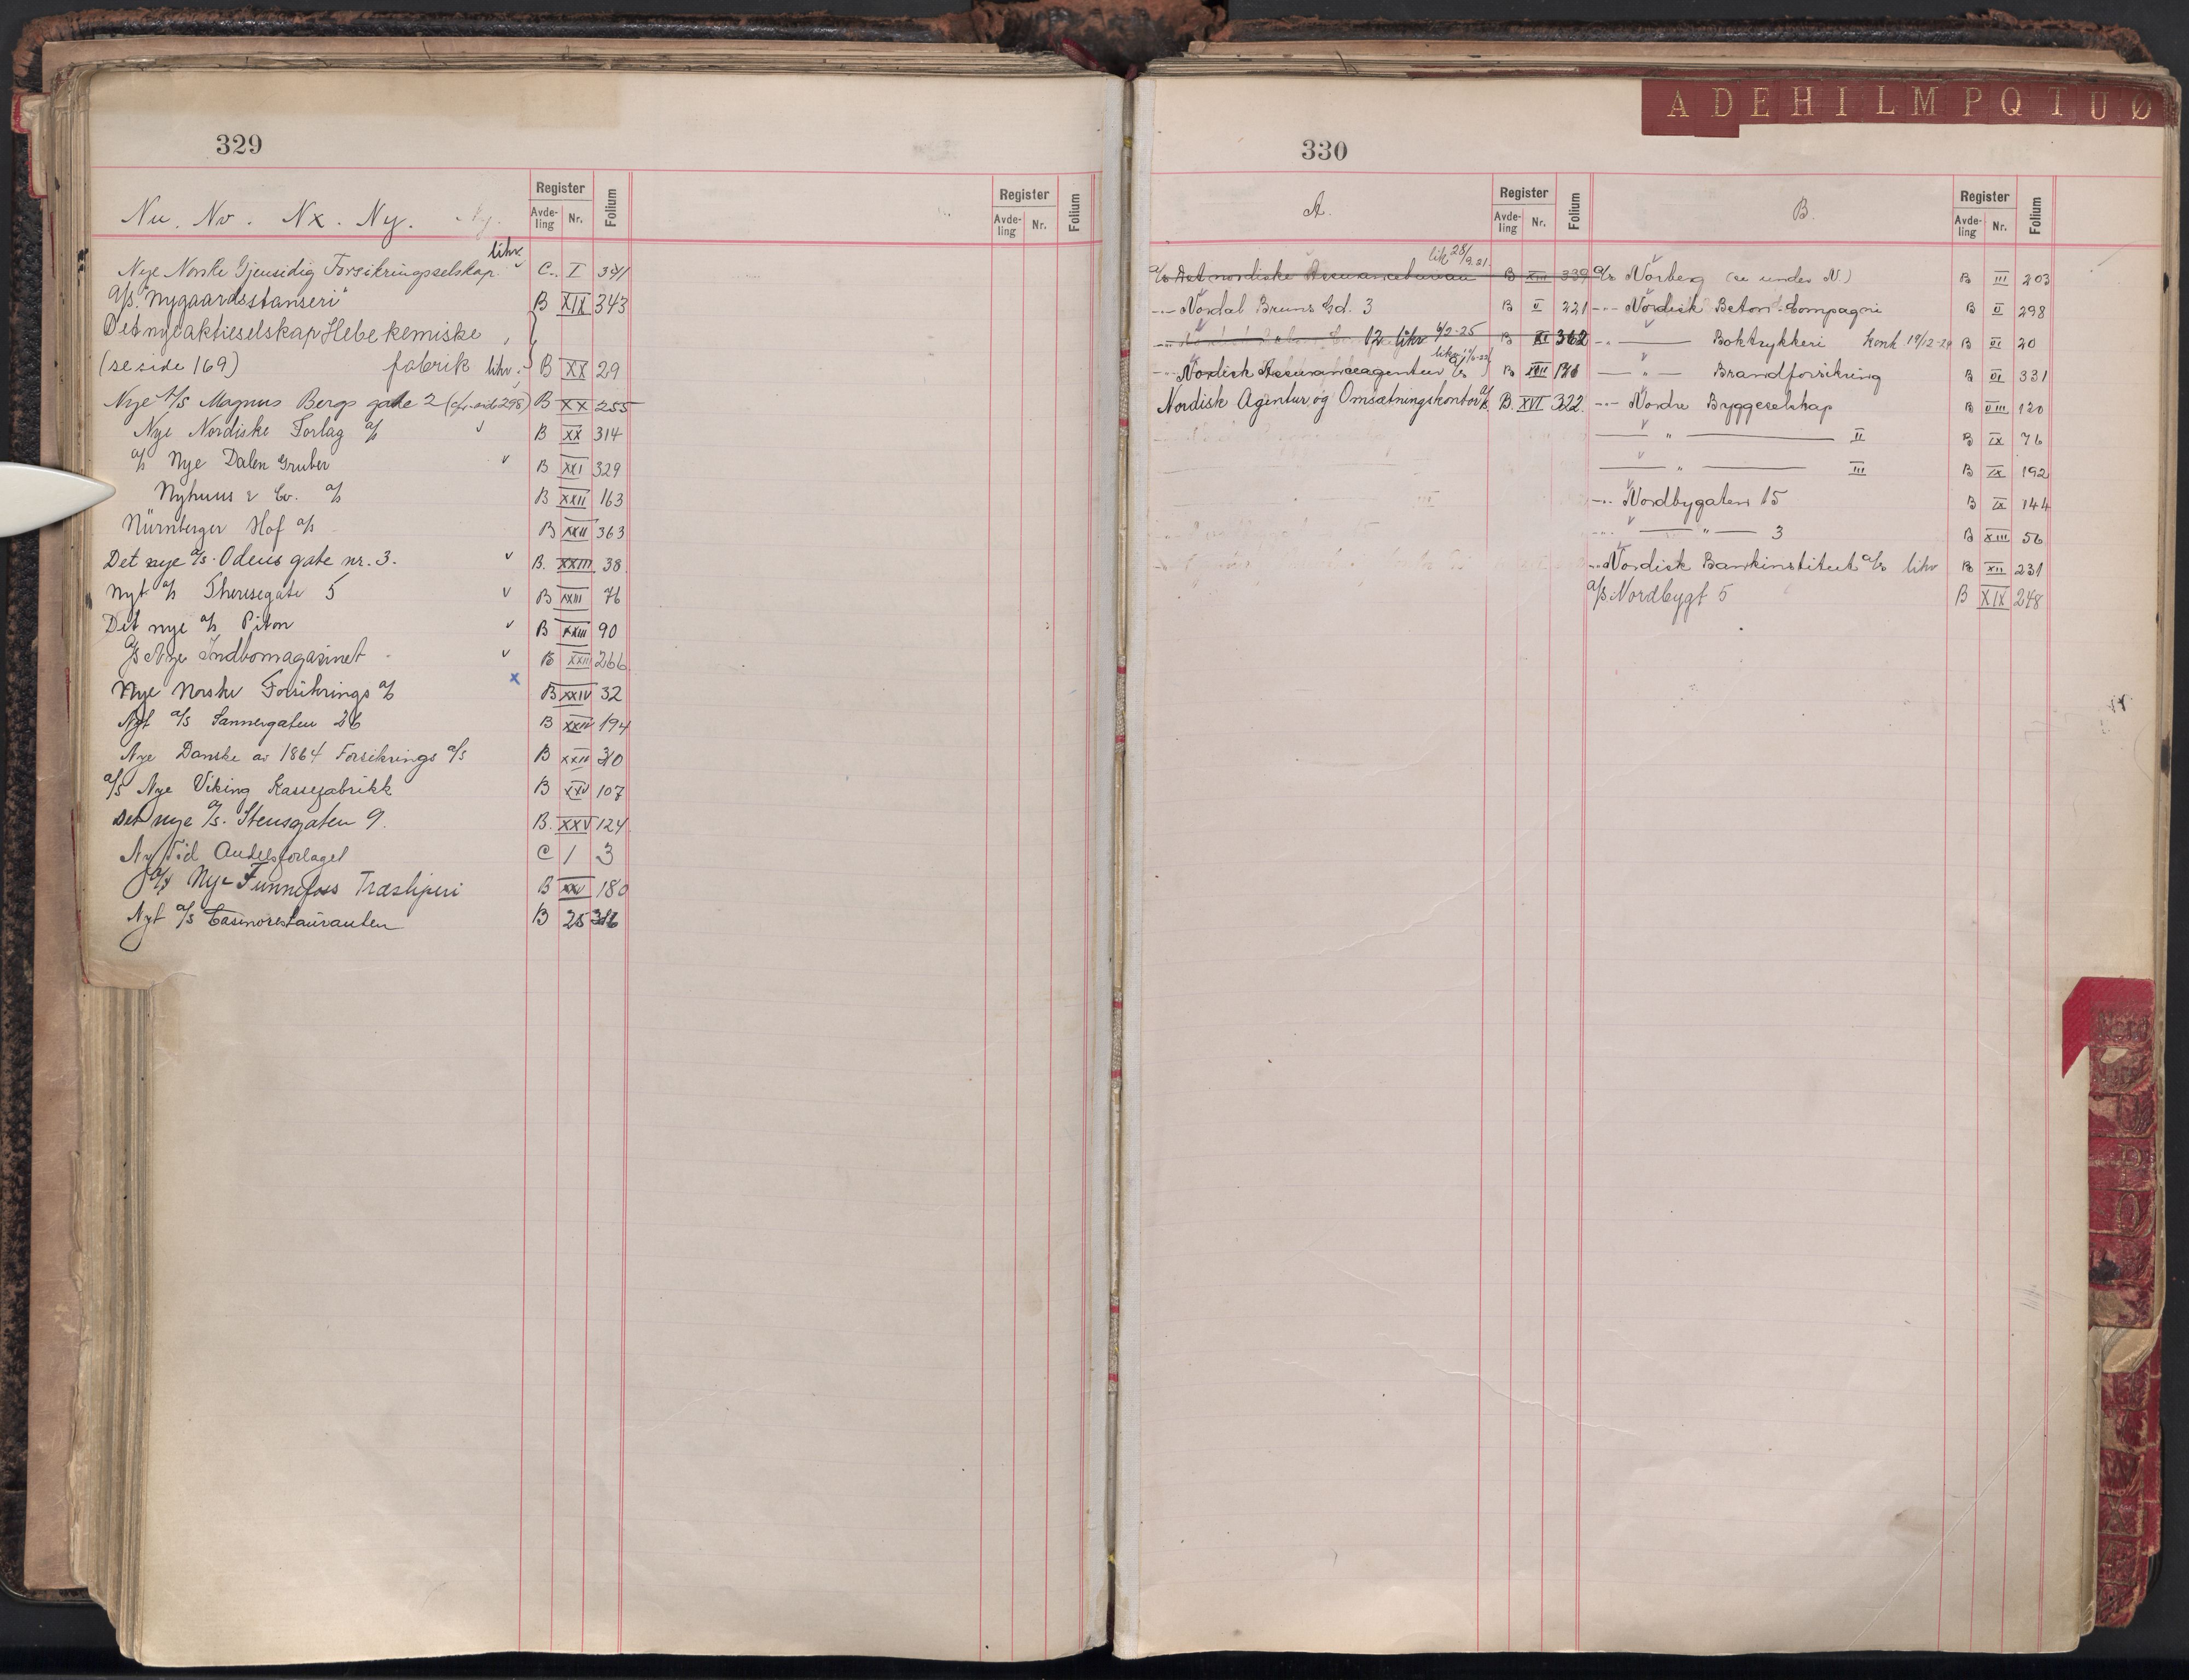 329
Nu. Nv. Nx. Ny.
Register
Avde-ling Nr. Folium
Register
Avde-ling Nr. Folium
Nye Norske Gjensidig Forsikringsselskap. likv. C. I 341
A/S. "Nygaardsstanseri" B XIX 343
Det nye aktieselskap Hebe kemiske
(se side 169) fabrik likv. B XX 29
Nye A/S Magnus Bergs gate 2 (cfr. side 298) B XX 255
Nye Nordiske Forlag a/s B XX 314
a/s Nye Dalen Gruber B XXI 329
Nyhuus & Co. a/s B XXII 163
Nürnberger Hof a/s B XXII 363
Det nye a/s. Odins gate nr. 3. B. XXIII. 38
Nyt a/s Theresegate 5 B XXIII 76
Det nye a/s Piton B XXIII 90
a/s Nye Indbomagasinet B XXIII 266
Nye Norske Forsikrings a/s x B XXIV 32
Nyt a/s Sannergaten 26 B XXIV 194
Nye Danske av 1864 Forsikrings a/s B XXIII 310
a/s Nye Viking Kassefabrikk B XXV 107
Det nye a/s. Stensgaten 9. B. XXV 124
Ny Tid Andelsforlaget C 1 3
A/S Nye Funnefoss Træsliperi B XXV 180
Nyt a/s Casinorestauranten B 25 316
A D E H I L M P Q T U Ø
330
A.
Register
Avde-ling Nr. Folium
a/s Det nordiske Assurancebureau lik 28/9.21. B XIII 339
-"- Nordal Bruns Gd. 3 B V 221
12 likv 6/2-25 B XI 362
-"- Nordisk Assuranceagentur a/s likv B XVII
Nordisk Agentur og Omsætningskontor a/s B. XVI 322.
B.
Register
Avde-ling Nr. Folium
a/s Norberg (se under N.) B III 203
-"- Nordisk Beton-Compagni B V 298
-"- Boktrykkeri konk 19/12-29 B VI 20
-"- Brandforsikring B VI 331
-"- Nordre Byggeselskap B VIII 120
-"- II B IX 76
-"- III B IX 192
-"- Nordbygaten 15 B IX 144
-"- 3 B XIII 56
-"- Nordisk Bankinstitut a/s likv B XII 231
a/s Nordbygt 5 B XIX 248